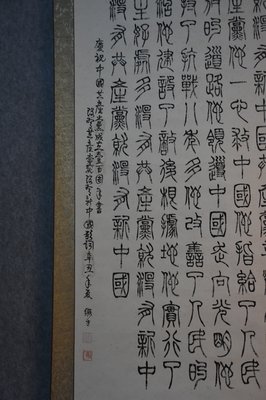 產黨他一心救中國他指給了人民解
放的道路他領導中國走向光明他
持了抗戰八年多他改善了人民生
活他建設了敵後根據地他實行了民
主好處多沒有共產黨就沒有新中國
沒有共產黨就沒有新中國
慶祝中國共產黨成立壹百周年書
沒有共產黨就沒有新中國歌詞辛丑年夏